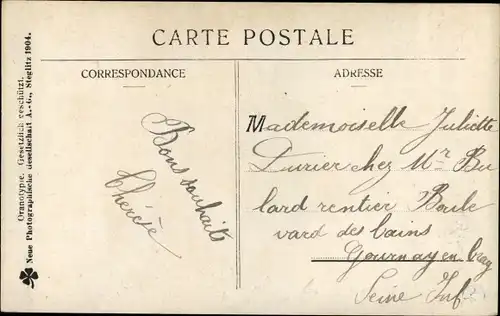 CARTE POSTALE
CORRESPONDANCE
ADRESSE
Bons souhaits
Thérèse
Mademoiselle Juliette
Durier chez Mr Bu
lard rentier Boule
vard des bains
Gournay en bray
Seine Inf
Oranotypie. Gesetzlich geschützt.
Neue Photographische Gesellschaft A.-G., Steglitz 1904.